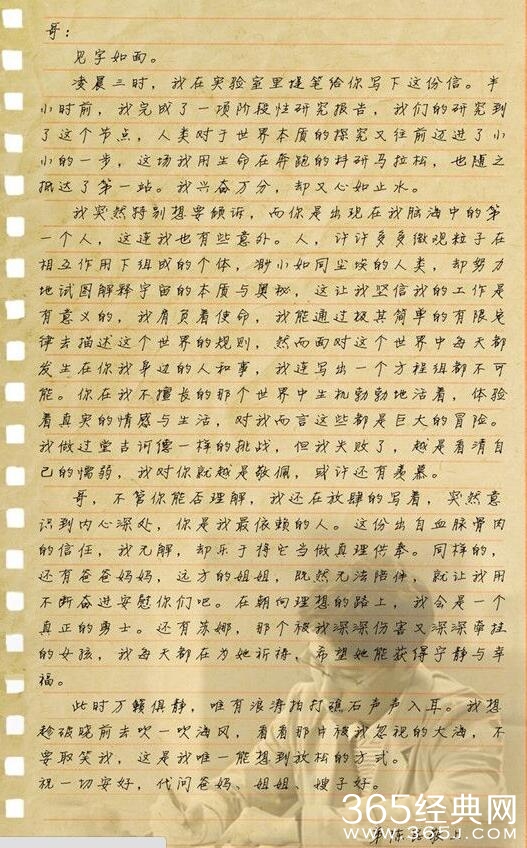 哥：
见字如面。
凌晨三时，我在实验室里提笔给你写下这份信。半
小时前，我完成了一项阶段性研究报告，我们的研究到
了这个节点，人类对于世界本质的探究又往前迈进了小
小的一步，这场我用生命在奔跑的科研马拉松，也随之
抵达了第一站。我兴奋万分，却又心如止水。
我突然特别想要倾诉，而你是出现在我脑海中的第
一个人，这连我也有些意外。人，许许多多微观粒子在
相互作用下组成的个体，渺小如同尘埃的人类，却努力
地试图解释宇宙的本质与奥秘，这让我坚信我的工作是
有意义的，我肩负着使命，我能通过极其简单的有限定
律去描述这个世界的规则，然而面对这个世界中每天都
发生在你我身边的人和事，我连写出一个方程组都不可
能。你在我不擅长的那个世界中生机勃勃地活着，体验
着真实的情感与生活，对我而言这些都是巨大的冒险。
我做过堂吉诃德一样的挑战，但我失败了，越是看清自
己的懦弱，我对你就越是敬佩，或许还有羡慕。
哥，不管你能否理解，我还在放肆的写着，突然意
识到内心深处，你是我最依赖的人。这份出自血脉骨肉
的信任，我无解，却乐于将它当做真理供奉。同样的，
还有爸爸妈妈，远方的姐姐，既然无法陪伴，就让我用
不断奋进安慰你们吧。在朝向理想的路上，我会是一个
真正的勇士。还有苏娜，那个被我深深伤害又深深牵挂
的女孩，我每天都在为她祈祷，希望她能获得宁静与幸
福。
此时万籁俱静，唯有浪涛拍打礁石声声入耳。我想
趁破晓前去吹一吹海风，看看那片被我忽视的大海，不
要取笑我，这是我唯一能想到放松的方式。
祝一切安好，代问爸妈、姐姐、嫂子好。
弟陈
365经典网
WWW.365J.COM